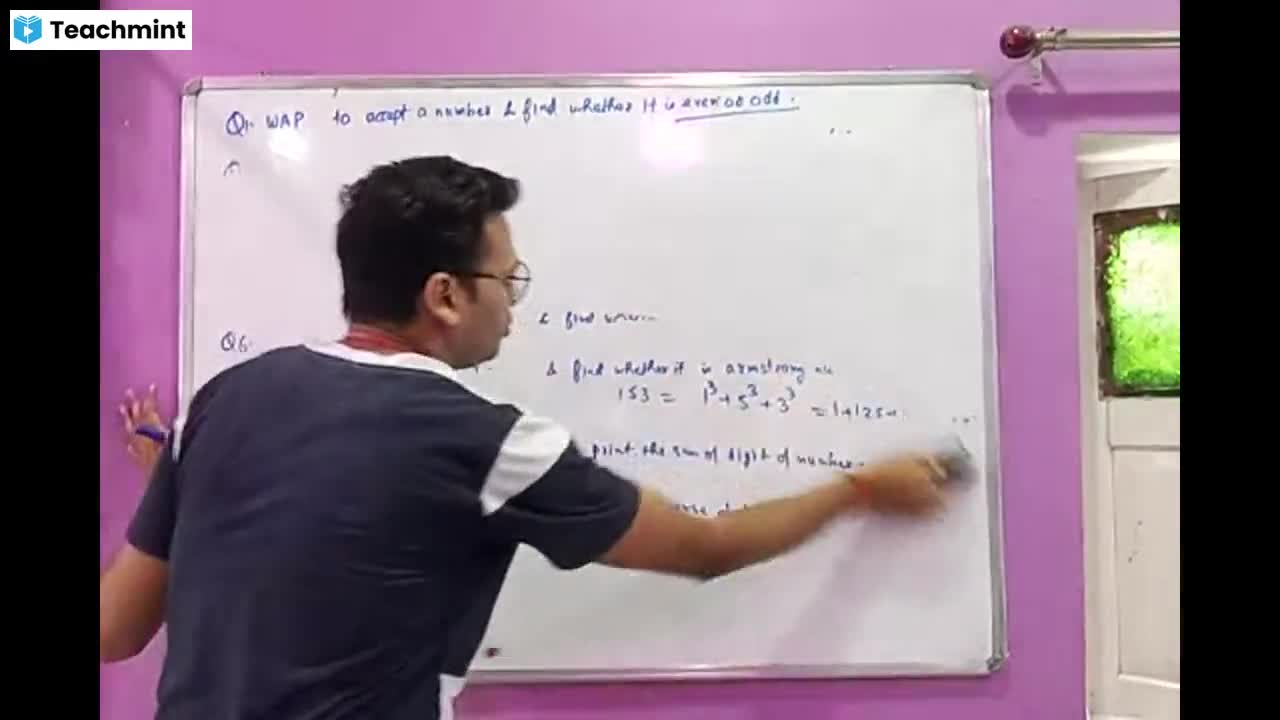 Teachmint
Q1. WAP to accept a number & find whether it is even or odd.
& find
Q6.
& find whether it is armstrong
153 = 1³+5³+3³ = 1+125+
print the sum of digit of number.